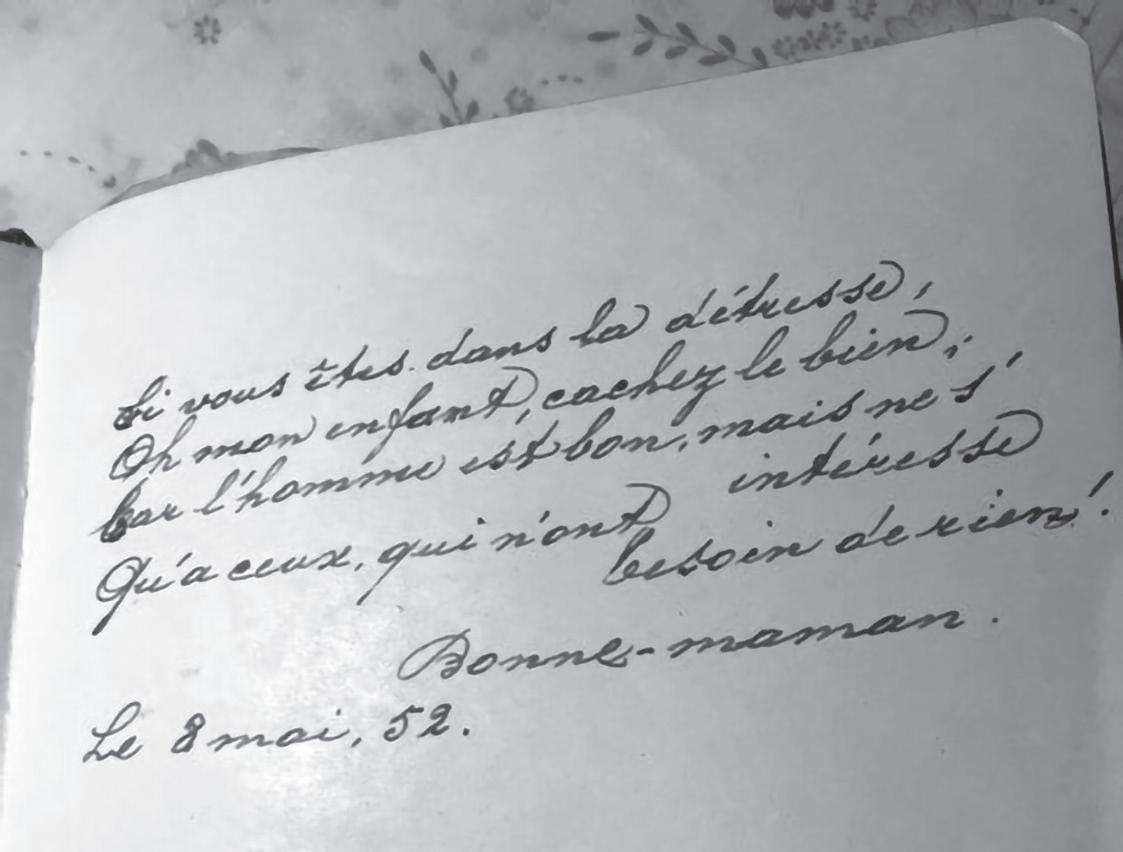 Si vous êtes dans la détresse,
Oh mon enfant, cachez le bien,
Car l'homme est bon, mais ne s'
intéresse
Qu'a ceux, qui n'ont
besoin de rien!
Bonne-maman.
Le 8 mai, 52.